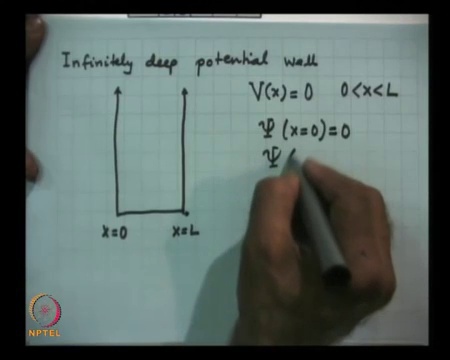 Infinitely deep potential wall
V(x) = 0 0 < x < L
Ψ (x=0) = 0
Ψ (
x=0 x=L
NPTEL